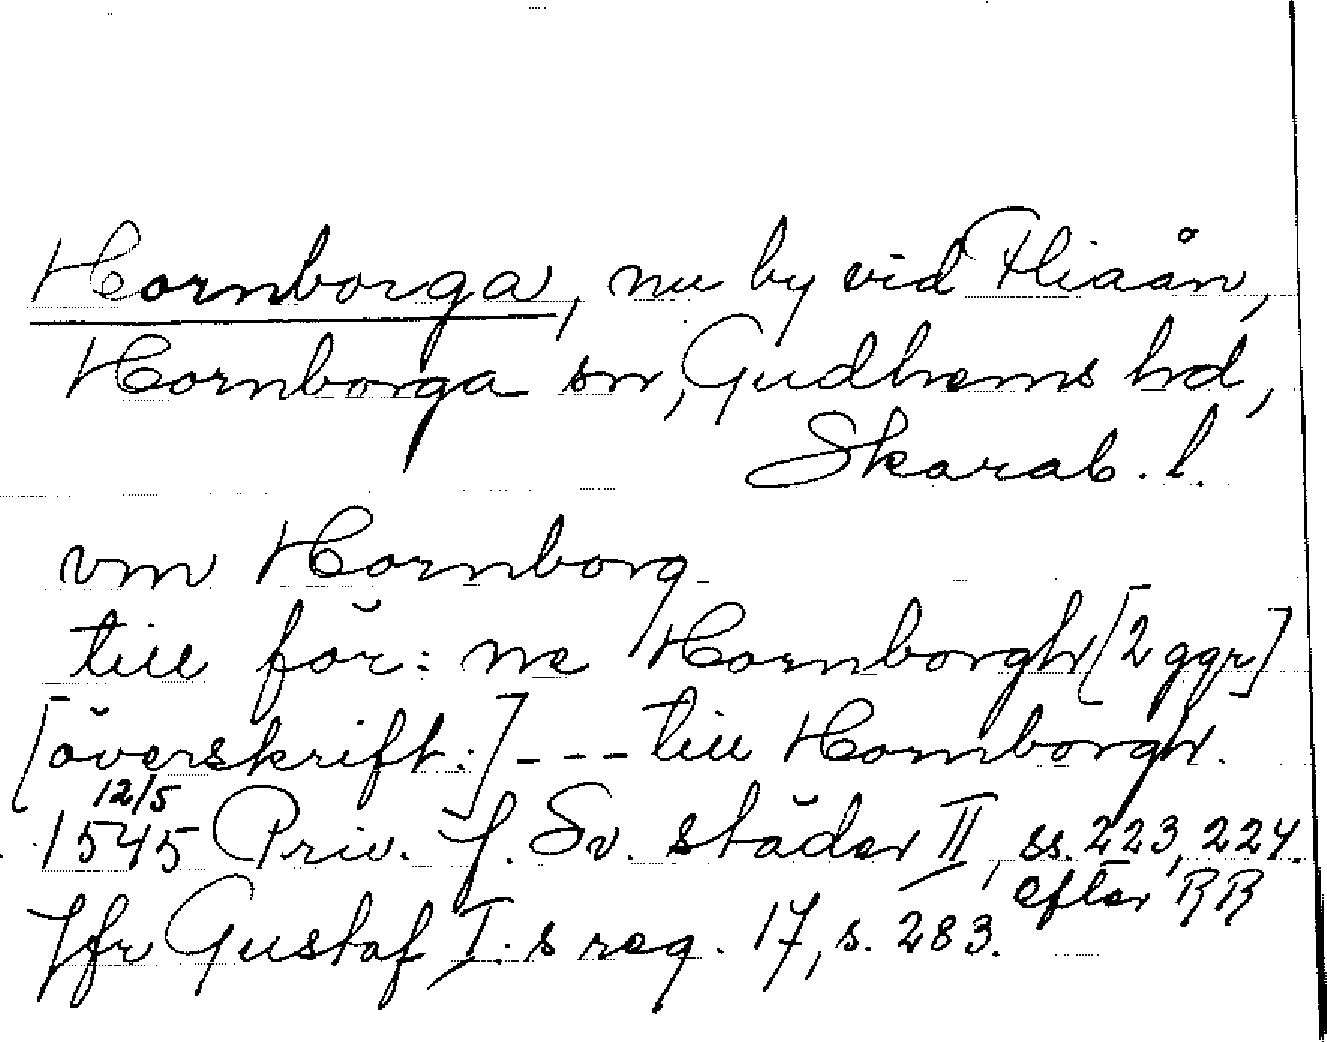 Hornborga, nu by vid Fliaån,
Hornborga sn, Gudhems hd,
Skarab. l.
vm Hornborg
till för: ne Hornborgh [2 ggr]
[överskrift:] --- till Hornborgh.
12/5
1545 Priv. f. Sv. städer II, ss. 223, 224.
efter RR
Jfr Gustaf I:s reg. 17, s. 283.